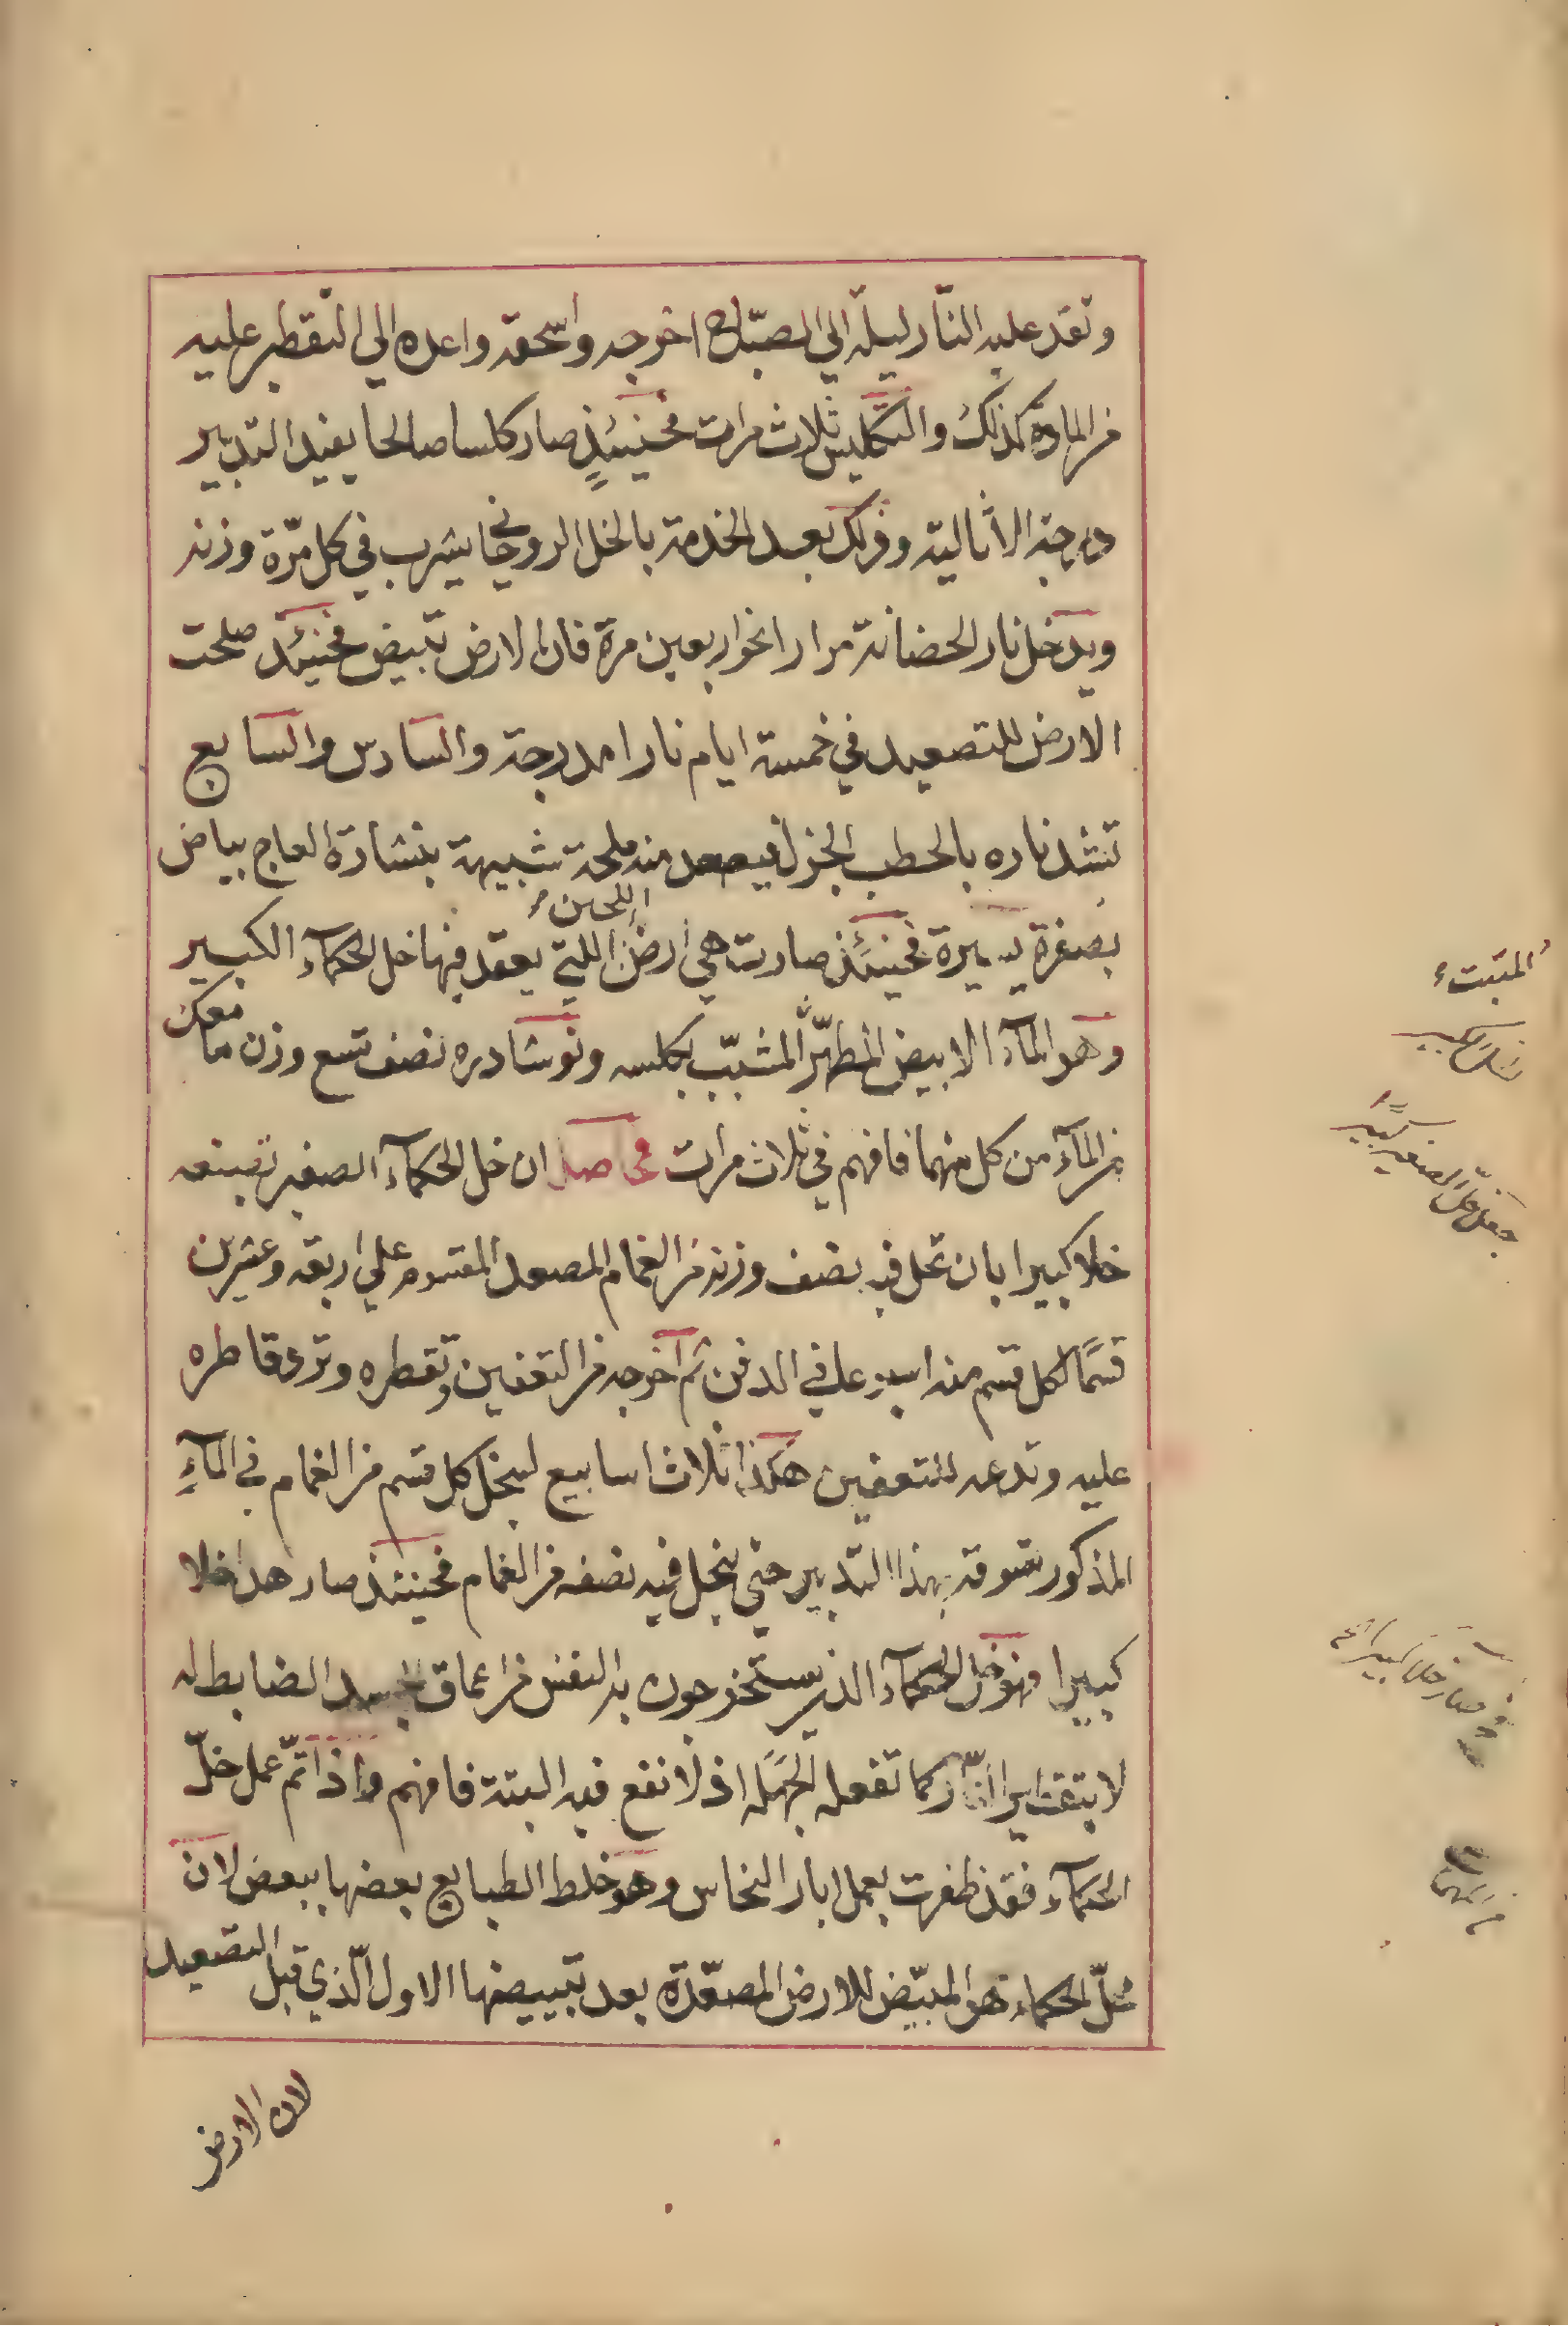 وتقد عليه النّار ليلة الي الصبّاح اخرجه واسحقه واعده الي التقطير عليه
من المادة كذلك والتكليس ثلاث مرات فحينئذٍ صار كلسا صالحا يفيد التدبير
درجة الاثالية وذلك بعد الخدمة بالخل الروحاني يشرب في كل مرّة وزنه
ويدخل نار الحضانة مرارا نحو اربعين مرة فان الارض تبيض فحينئذ صلحت
الارض للتصعيد في خمسة ايام نارا مدرجة والسادس والسابع
تشد ناره بالحطب الجزل فيصعد منه ملحة شبيهة بنشارة العاج بياض
بصفرة يسيرة فحينئذ صارت هي ارض اللتي يعقد فيها خل الحكمآء الكبير
وهو المآء الابيض المطهّر المشبّب بكلسه ونوشادره نصف تسع وزن ما معك
من المآء من كل منهما فافهم في ثلاث مرات ان خل الحكمآء الصغير تصنعه
خلا كبيرا بان تحل فيه نصف وزنه من الغمام المصعد المقسوم علي اربعة وعشرين
قسمًا لكل قسم منه اسبوعا في الدفن ثم اخرجه من التعفين وتقطره وترد قاطره
عليه وتدعه للتعفين هكذا ثلاث اسابيع لينحل كل قسم من الغمام في المآءِ
المذكور تسوقه بهذا التدبير حتي ينحل فيه نصفه من الغمام فحينئذ صار هذا خلا
كبيرا وهو خل الحكمآء الذين يستخرجون به النفس من اعماق الجسد الضابط له
لا بتقتير النّار كما تفعله الجهَلة اذ لا نفع فيه البتة فافهم واذا تمّ عمل خلّ
الحكمآء فقد ظفرت بعمل ابار النحاس وهو خلط الطبايع بعضها ببعض لان
خلّ الحكماء هو المبيّض للارض المصعّدة بعد تبييضها الاول الّذي قبل التصعيد
لان الارض
المثبت
جعل خل الصغير كبيرًا
وصار خلا كبيرا